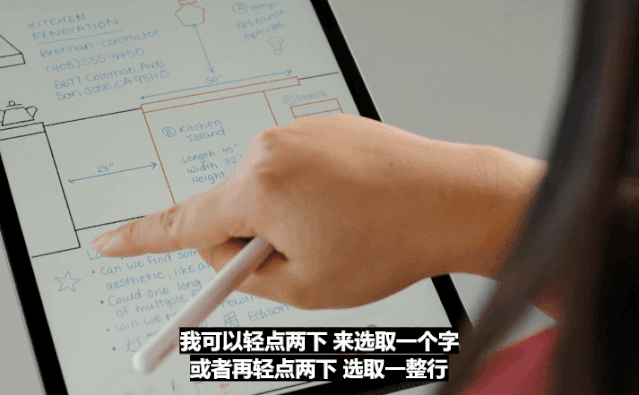 KITCHEN
RENOVATION
Brennan-contractor
(408) 555 4450
5677 Coleman Ave
San Jose, CA 95110
Ⓐ Lamp
restaurant
options
50"
Ⓑ Kitchen
Island
Length 45"
Width 32"
Height
Ⓒ Stools
28"
• Can we find som
aesthetic, like a
• Could one long
of multiple
• Will we
Edison
我可以轻点两下 来选取一个字
或者再轻点两下 选取一整行